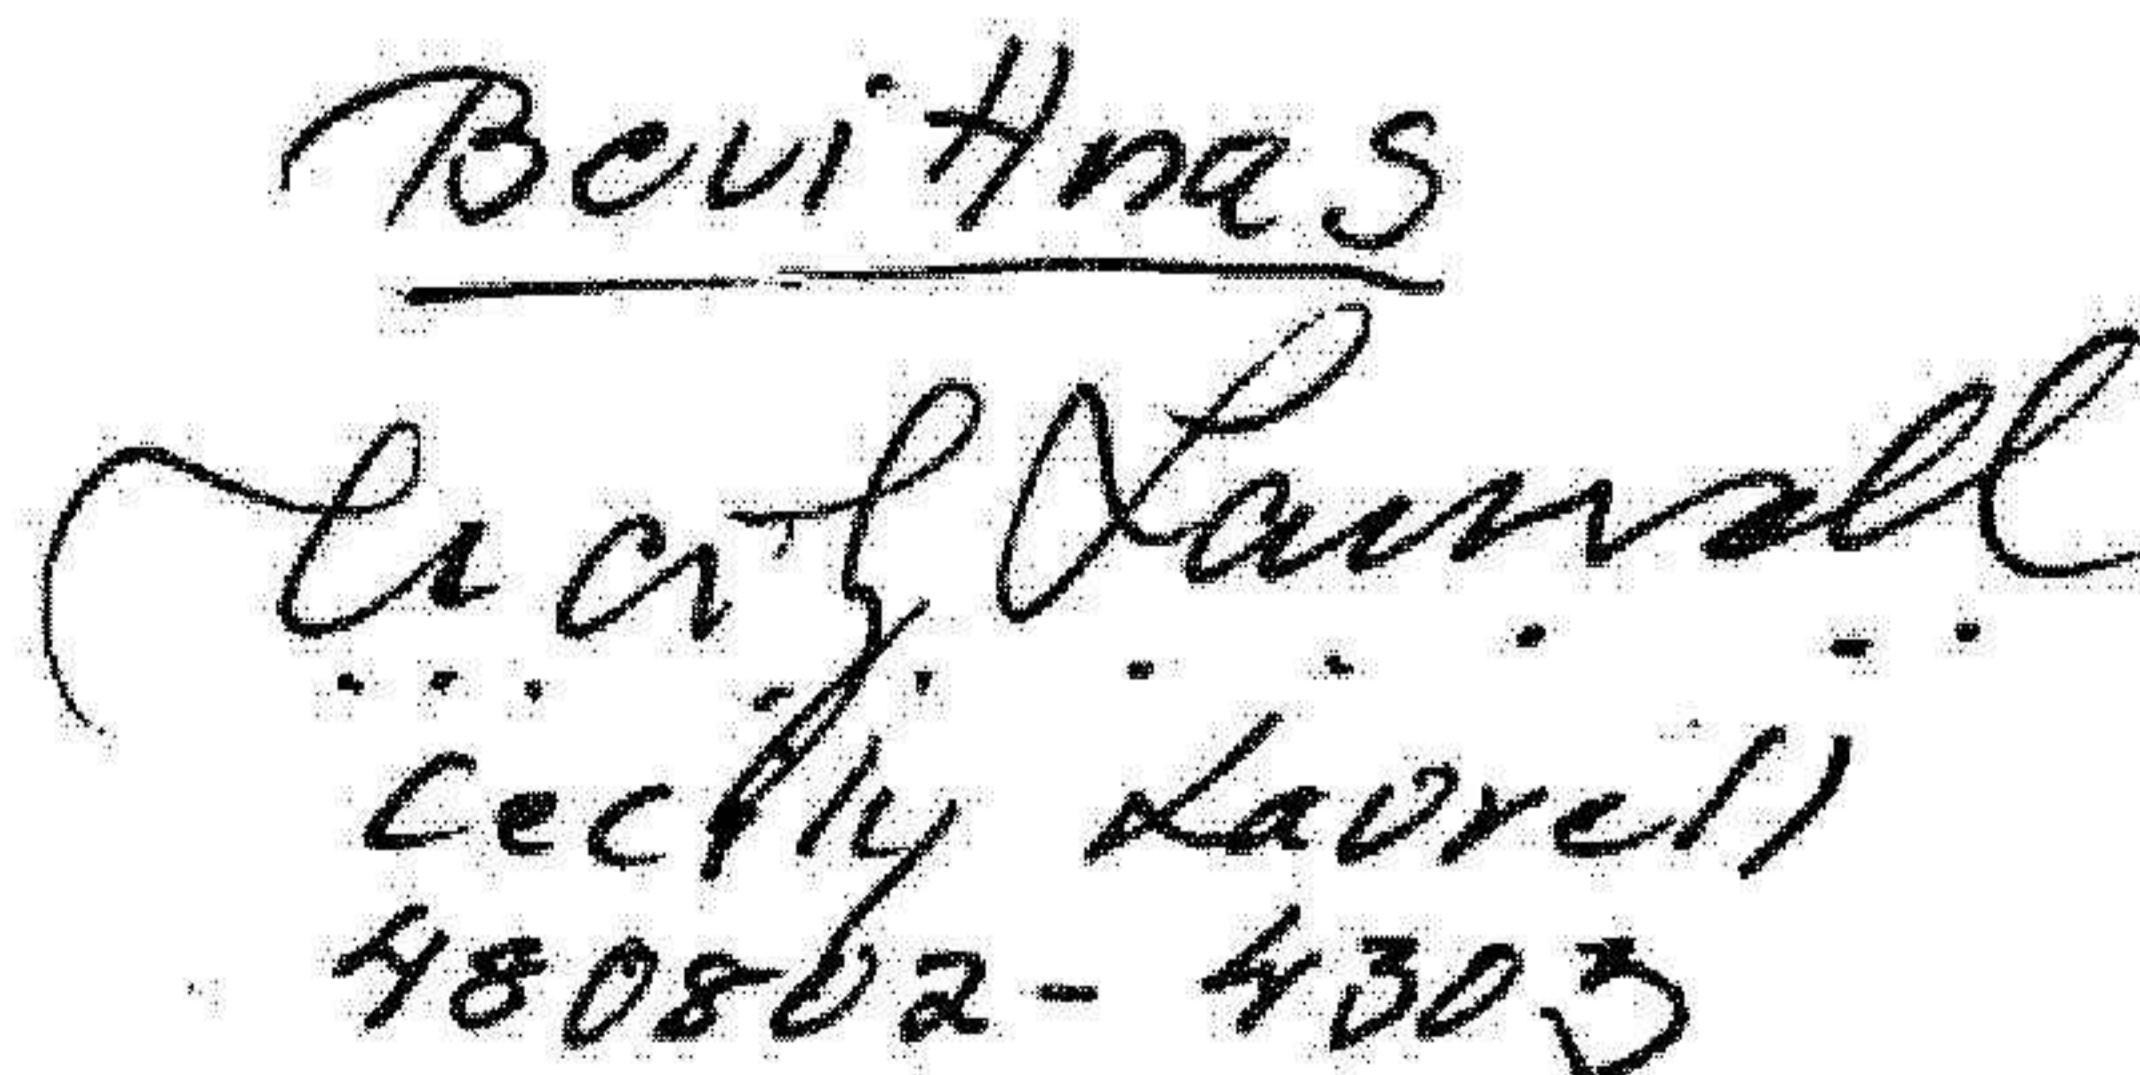 Bevittnas
Cecily Laurell
Cecily Laurell
480802-4303